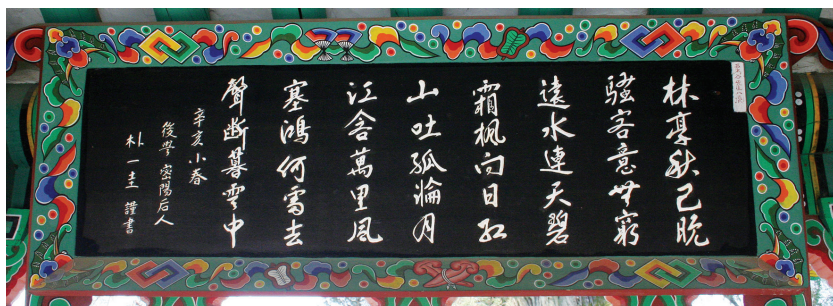 林亭秋已晩
騷客意無窮
遠水連天碧
霜楓向日紅
山吐孤淪月
江含萬里風
塞鴻何處去
聲斷暮雲中
辛亥小春
後學密陽后人
朴一圭 謹書